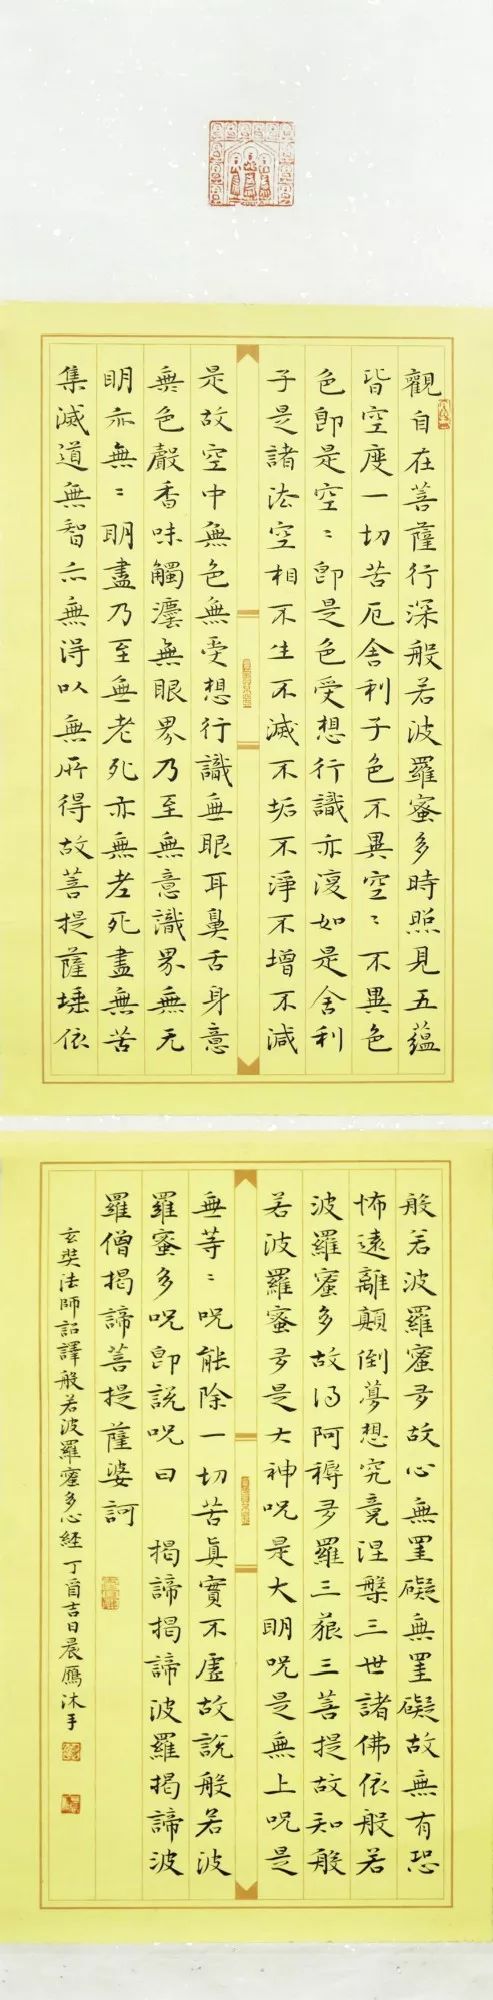 觀自在菩薩行深般若波羅蜜多時照見五蘊
皆空度一切苦厄舍利子色不異空〻不異色
色即是空〻即是色受想行識亦復如是舍利
子是諸法空相不生不滅不垢不淨不增不減
是故空中無色無受想行識無眼耳鼻舌身意
無色聲香味觸塵無眼界乃至無意識界無无
明亦無〻明盡乃至無老死亦無老死盡無苦
集滅道無智亦無得以無所得故菩提薩埵依
般若波羅蜜多故心無罣礙無罣礙故無有恐
怖遠離顛倒夢想究竟涅槃三世諸佛依般若
波羅蜜多故得阿耨多羅三藐三菩提故知般
若波羅蜜多是大神呪是大明呪是無上呪是
無等〻呪能除一切苦眞實不虛故說般若波
羅蜜多呪即說呪曰 揭諦揭諦波羅揭諦波
羅僧揭諦菩提薩婆訶
玄奘法師詔譯般若波羅蜜多心經 丁酉吉日晨鴈沐手